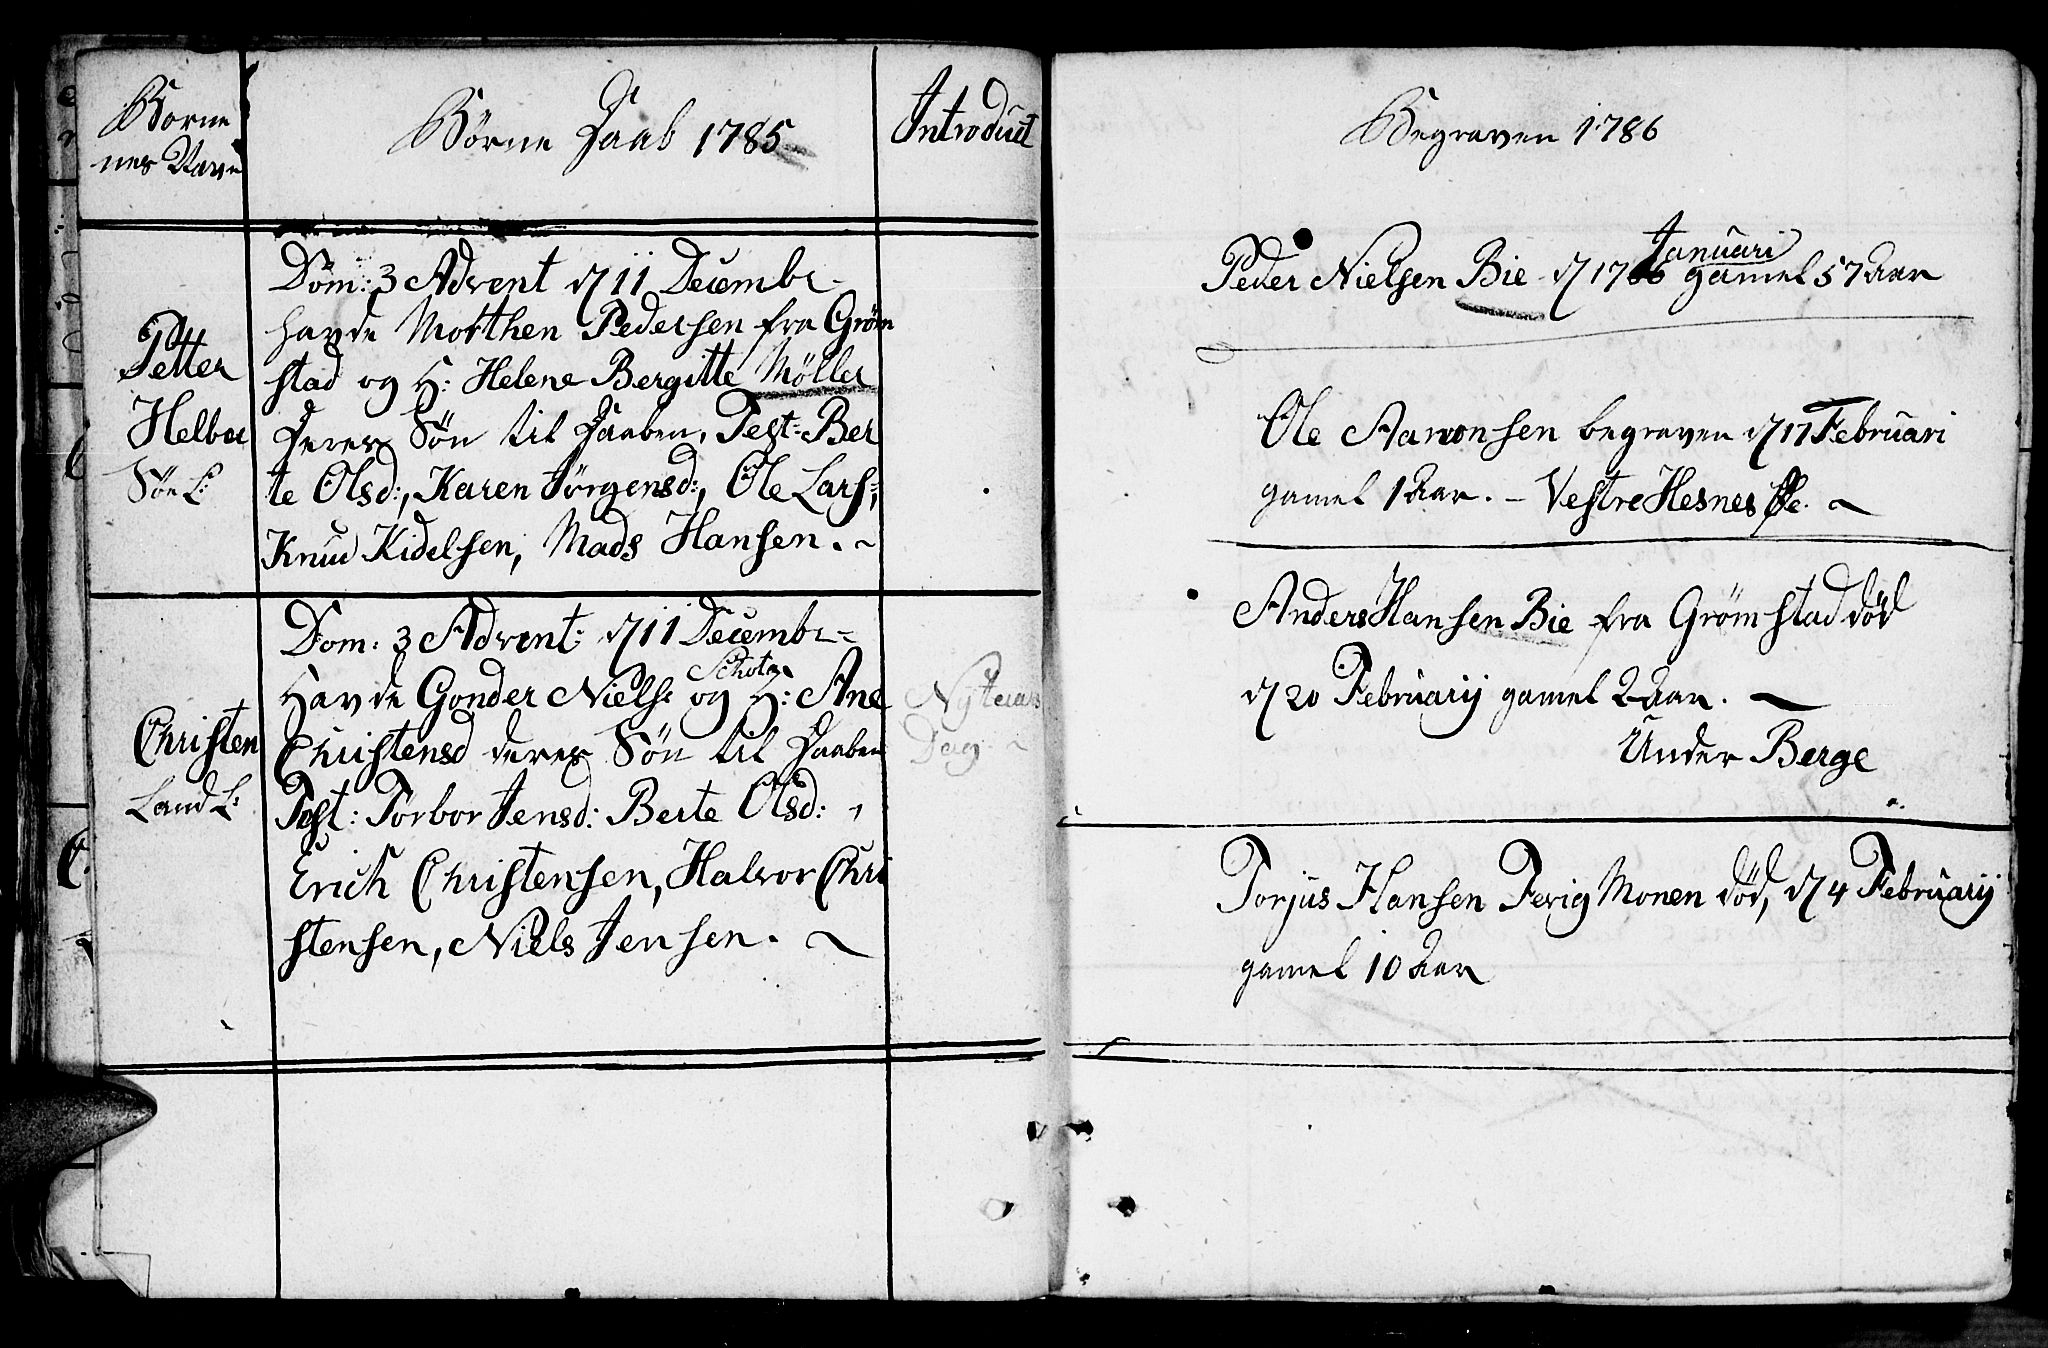 Borne
nes Navne
Börne Daab 1785
Introduct
Petter
Helber
Sön L:
Dom: 3 Advent d 11 Decembr
havde Morthen Pedersen fra Gröm
stad og H: Helene Bergitte Möller
deres Sön til Daaben, Test: Ber
te Olsd:, Karen Jörgensd:, Ole Lars:,
Knud Kidelsen, Mads Hansen.
Christen
Land L:
Dom: 3 Advent: d 11 Decembr
Schota
Havde Gonder Niels: og H: Ane
Christensd deres Sön til Daaben
Test: Torbor Jensd: Berte Olsd:,
Erich Christensen, Halvor Chri
stensen, Niels Jensen.
Nyteaars
Dag
Begraven 1786
Januari
Peder Nielsen Bie d 17 gamel 57 Aar
Ole Aanonsen begraven d 17 Februari
gamel 1 Aar. - Vestre Hesnes
Anders Hansen Bie fra Grömstad död
d 20 Februarij gamel 2 Aar.
Under Berge
Torjus Hansen Ferig Monen död, d 4 Februarij
gamel 10 Aar